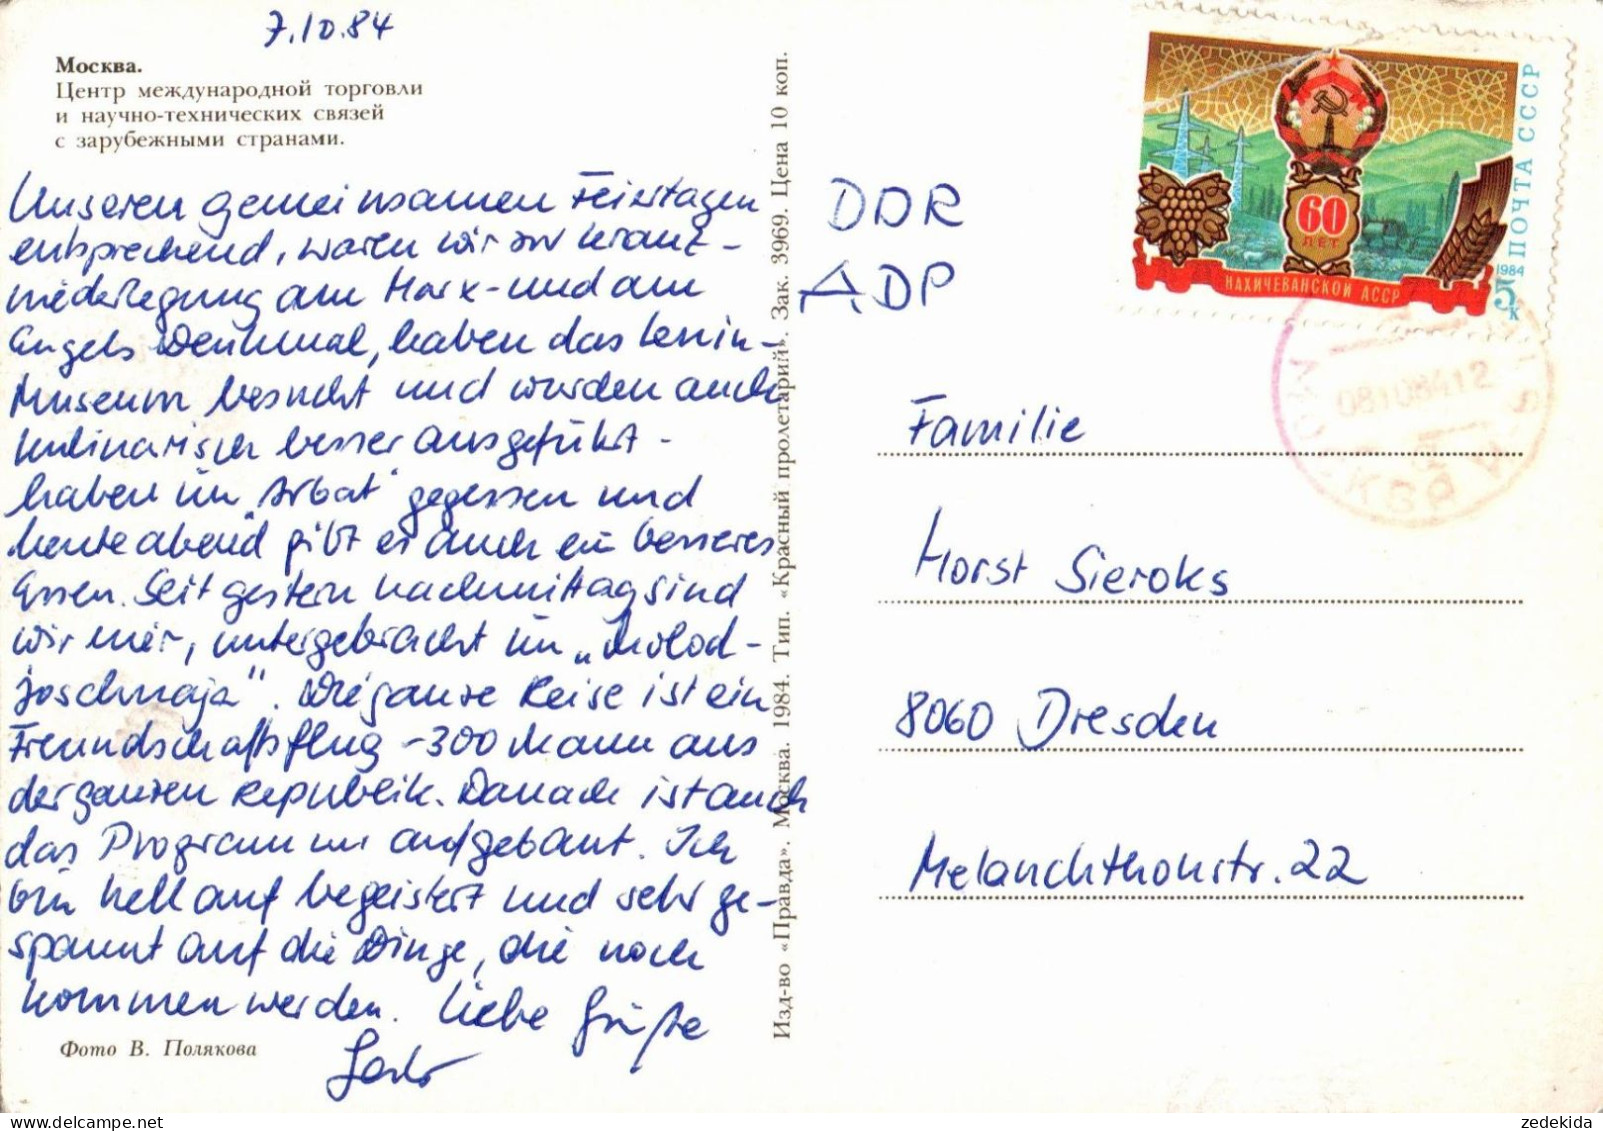 7.10.84
Москва.
Центр международной торговли
и научно-технических связей
с зарубежными странами.
Unseren gemeinsamen Feiertagen
entsprechend, waren wir zur Kranz-
niederlegung am Marx- und am
Engels Denkmal, haben das Lenin-
Museum besucht und wurden auch
kulinarisch besser ausgeführt -
haben im „Arbat" gegessen und
heute abend gibt es auch ein besseres
Essen. Seit gestern nachmittag sind
wir hier, untergebracht im „Molod-
joschnaja". Die ganze Reise ist ein
Freundschaftsflug - 300 Mann aus
der ganzen Republik. Danach ist auch
das Programm aufgebaut. Ich
bin hellauf begeistert und sehr ge-
spannt auf die Dinge, die noch
kommen werden. Liebe Grüße
Фото В. Полякова
Изд-во «Правда». Москва. 1984. Тип. «Красный пролетарий». Зак. 3969. Цена 10 коп.
DDR
ADP
60
ЛЕТ
НАХИЧЕВАНСКОЙ АССР
ПОЧТА СССР
1984
5к
МОСКВА
08108412
Familie
Horst Sieroks
8060 Dresden
Melanchthonstr. 22
zedekida